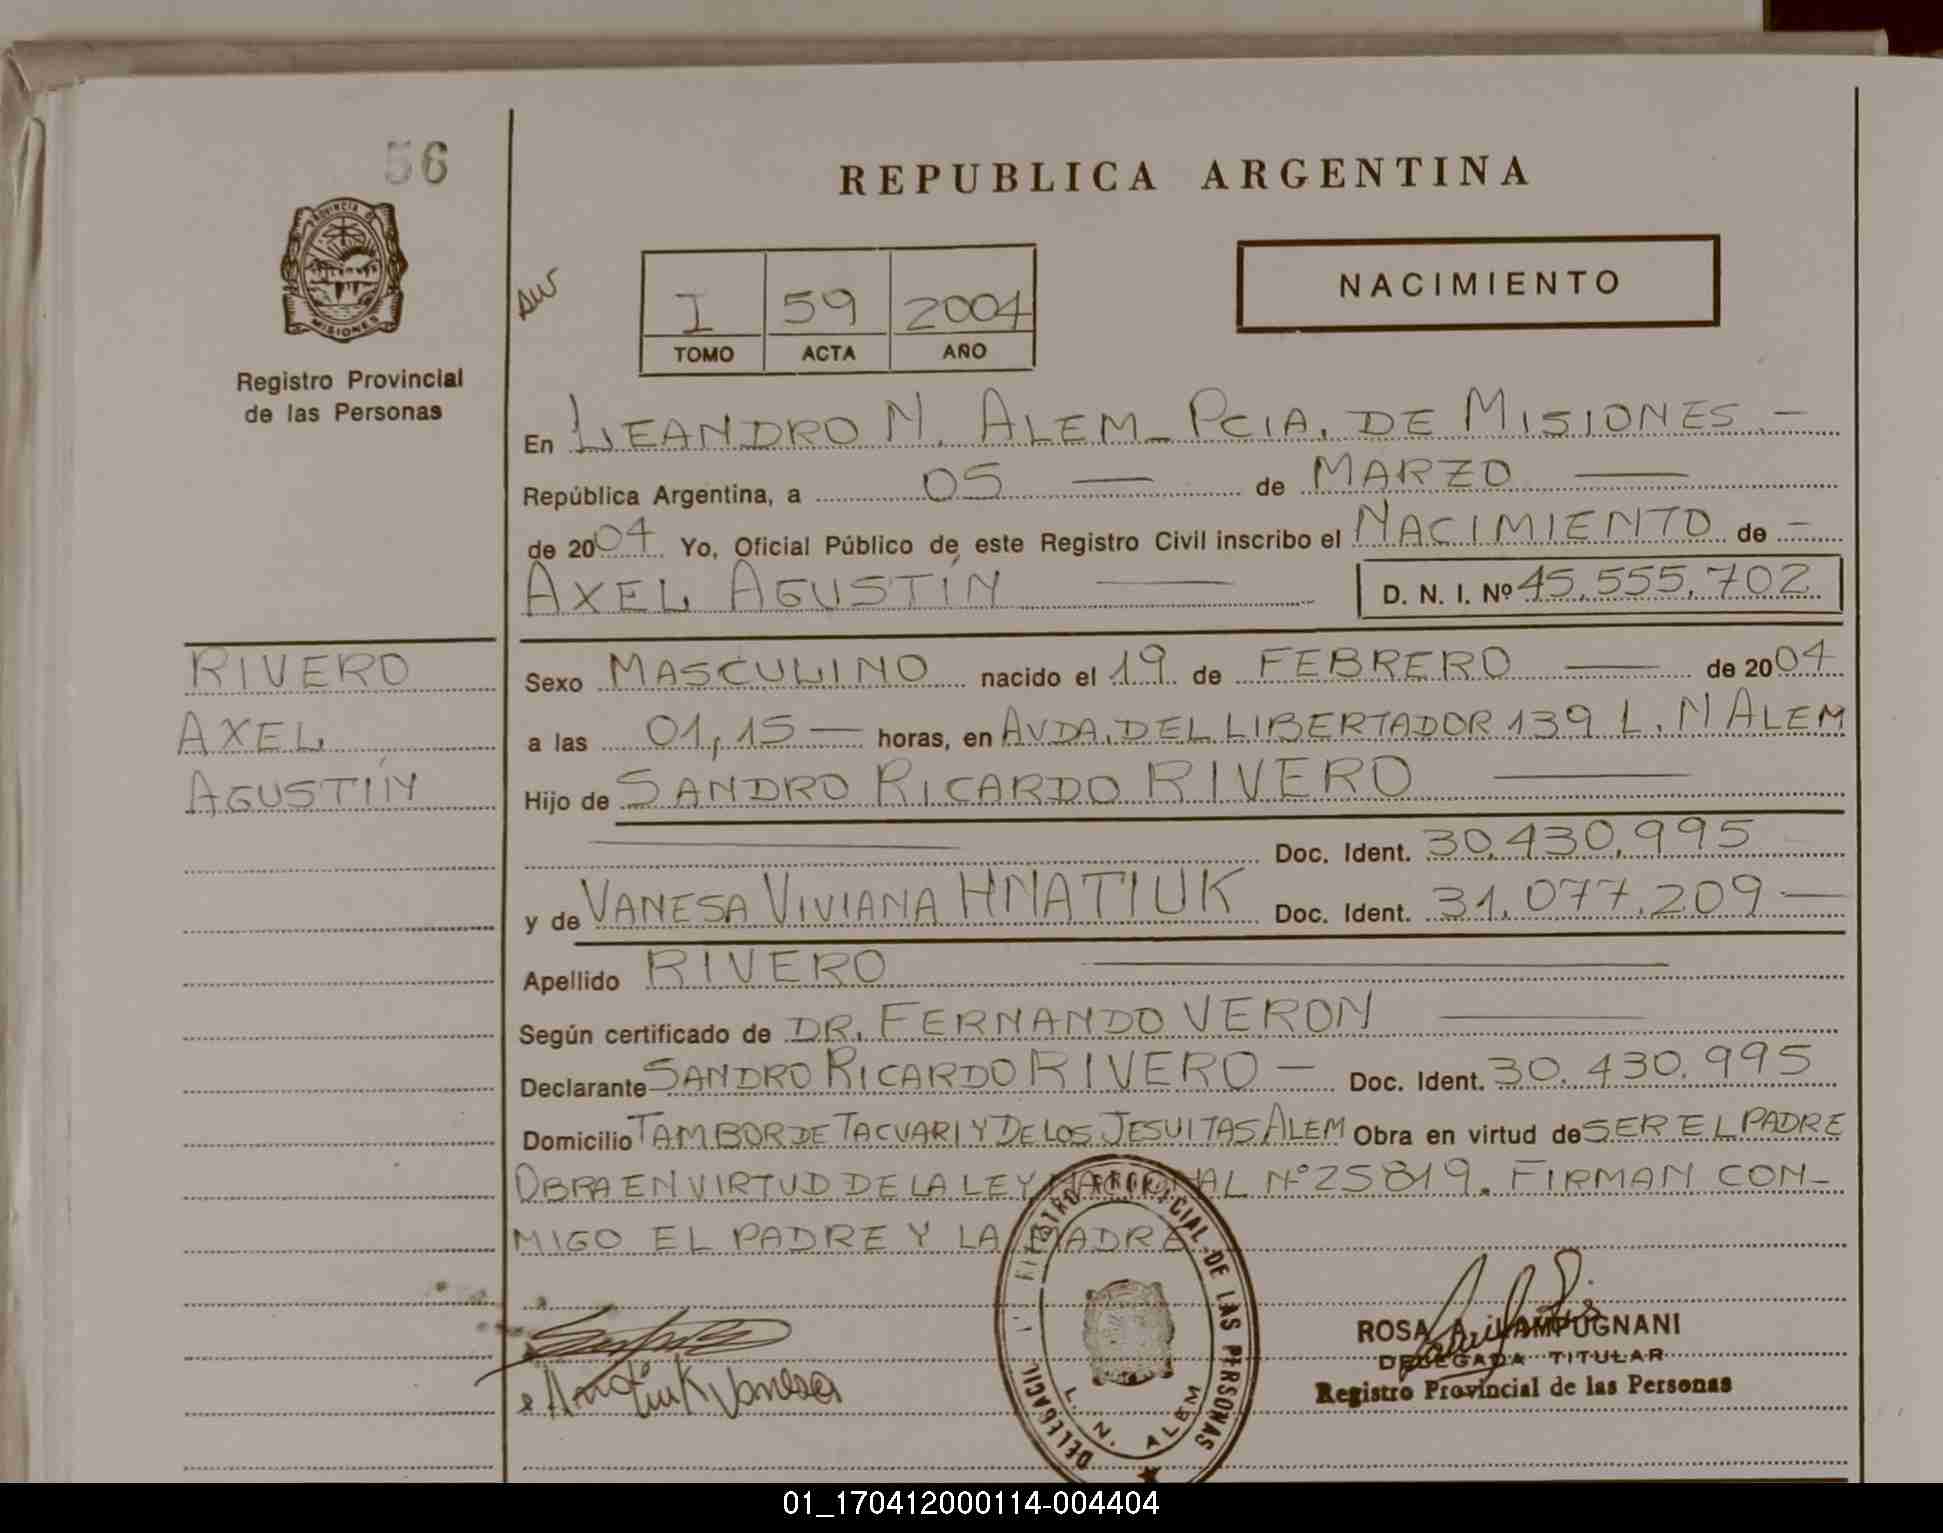 56
REPUBLICA ARGENTINA
PROVINCIA DE
MISIONES
Registro Provincial
de las Personas
I 59 2004
TOMO ACTA AÑO
NACIMIENTO
En LEANDRO N. ALEM_ PCIA. DE MISIONES. —
República Argentina, a 05 — de MARZO —
de 2004 Yo, Oficial Público de este Registro Civil inscribo el NACIMIENTO de —
AXEL AGUSTÍN — D. N. I. Nº 45.555.702
RIVERO
AXEL
AGUSTÍN
Sexo MASCULINO nacido el 19 de FEBRERO — de 2004
a las 01,15 — horas, en AVDA. DEL LIBERTADOR 139 L. N ALEM
Hijo de SANDRO RICARDO RIVERO —
— Doc. Ident. 30.430.995
y de VANESA VIVIANA HNATIUK Doc. Ident. 31.077.209 —
Apellido RIVERO —
Según certificado de DR. FERNANDO VERON —
Declarante SANDRO RICARDO RIVERO — Doc. Ident. 30.430.995
Domicilio TAMBOR DE TACUARI Y DE LOS JESUITAS ALEM Obra en virtud de SER EL PADRE
OBRA EN VIRTUD DE LA LEY NACIONAL Nº 25819. FIRMAN CON-
MIGO EL PADRE Y LA MADRE
REGISTRO PROVINCIAL DE LAS PERSONAS
L. N. ALEM
Hnatiuk Vanesa
ROSA A. LAMPUGNANI
DELEGADA TITULAR
Registro Provincial de las Personas
01_170412000114-004404